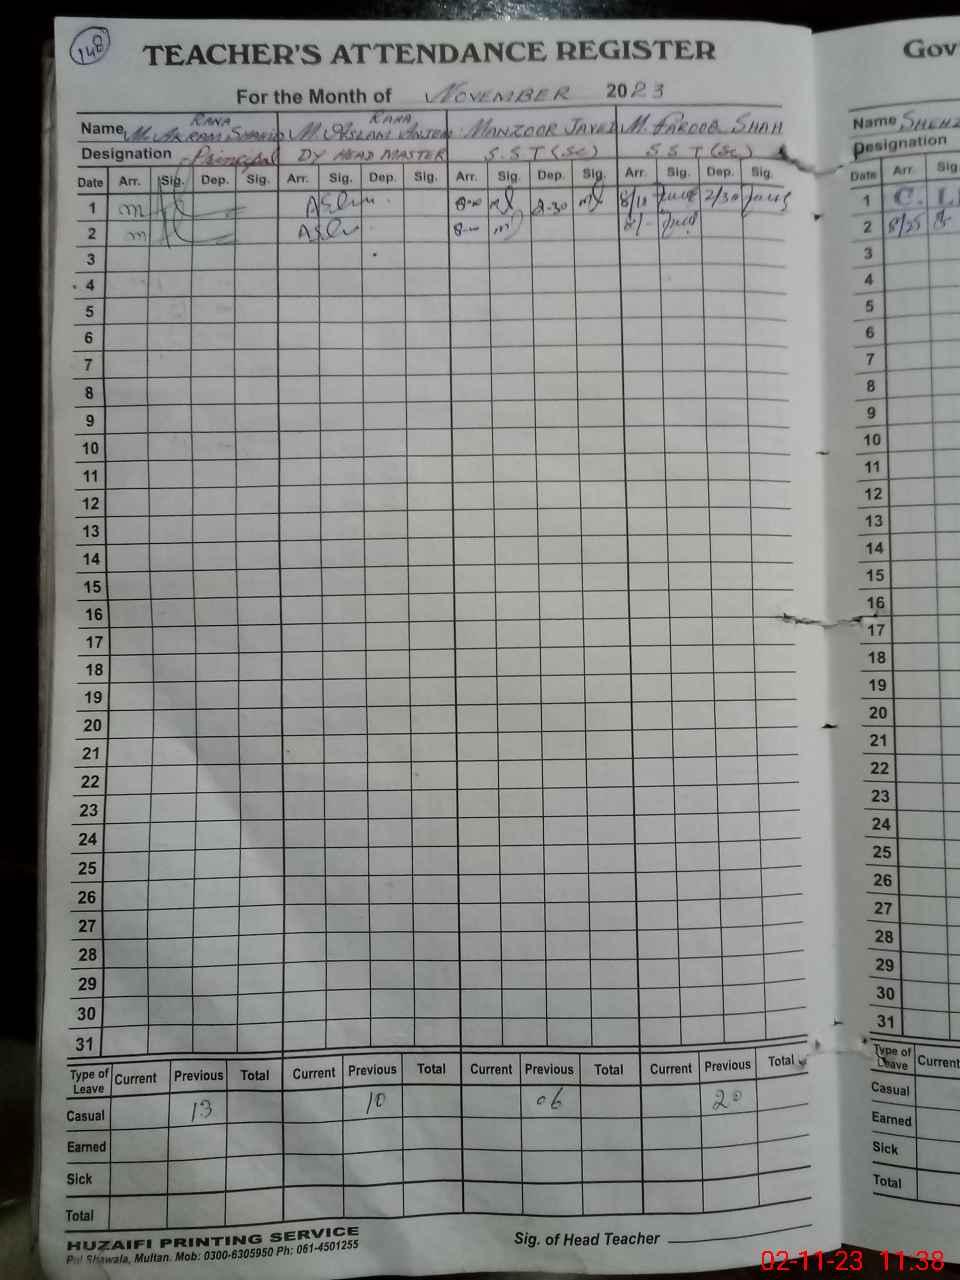 148
TEACHER'S ATTENDANCE REGISTER
For the Month of NOVEMBER 2023
Name RANA M. AKRAM SHAHID RANA M. ASLAM ANJEM MANZOOR JAVED M. FAROOB SHAH
Designation Principal DY HEAD MASTER S.S.T (Sc) S.S T (Sc)
Date Arr. Sig. Dep. Sig. Arr. Sig. Dep. Sig. Arr. Sig. Dep. Sig. Arr. Sig. Dep. Sig.
1 8-00 2-30 8/10 2/30
2 8-00 8/-
3
4
5
6
7
8
9
10
11
12
13
14
15
16
17
18
19
20
21
22
23
24
25
26
27
28
29
30
31
Type of Leave Current Previous Total Current Previous Total Current Previous Total Current Previous Total
Casual 13 10 06 20
Earned
Sick
Total
HUZAIFI PRINTING SERVICE
Pul Shawala, Multan. Mob: 0300-6305950 Ph: 061-4501255
Sig. of Head Teacher
Gov
Name SHEHZ
Designation
Date Arr. Sig.
1 C. L
2 8/25
3
4
5
6
7
8
9
10
11
12
13
14
15
16
17
18
19
20
21
22
23
24
25
26
27
28
29
30
31
Type of Leave Current
Casual
Earned
Sick
Total
02-11-23 11.38